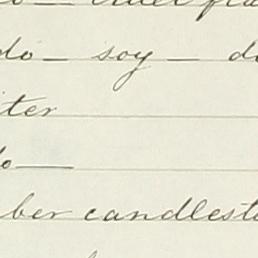 do — soy — do
iter
do —
ber candlest